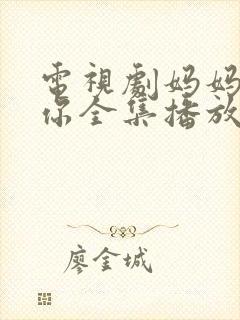 電視劇妈妈
你全集播放
廖金城